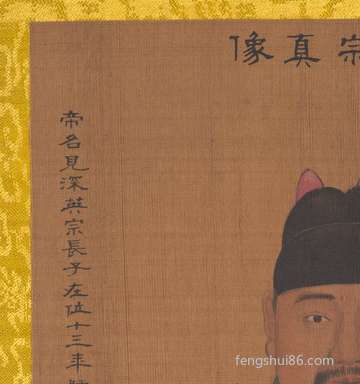 宗真像
帝名見深英宗長子在位十三年
fengshui86.com